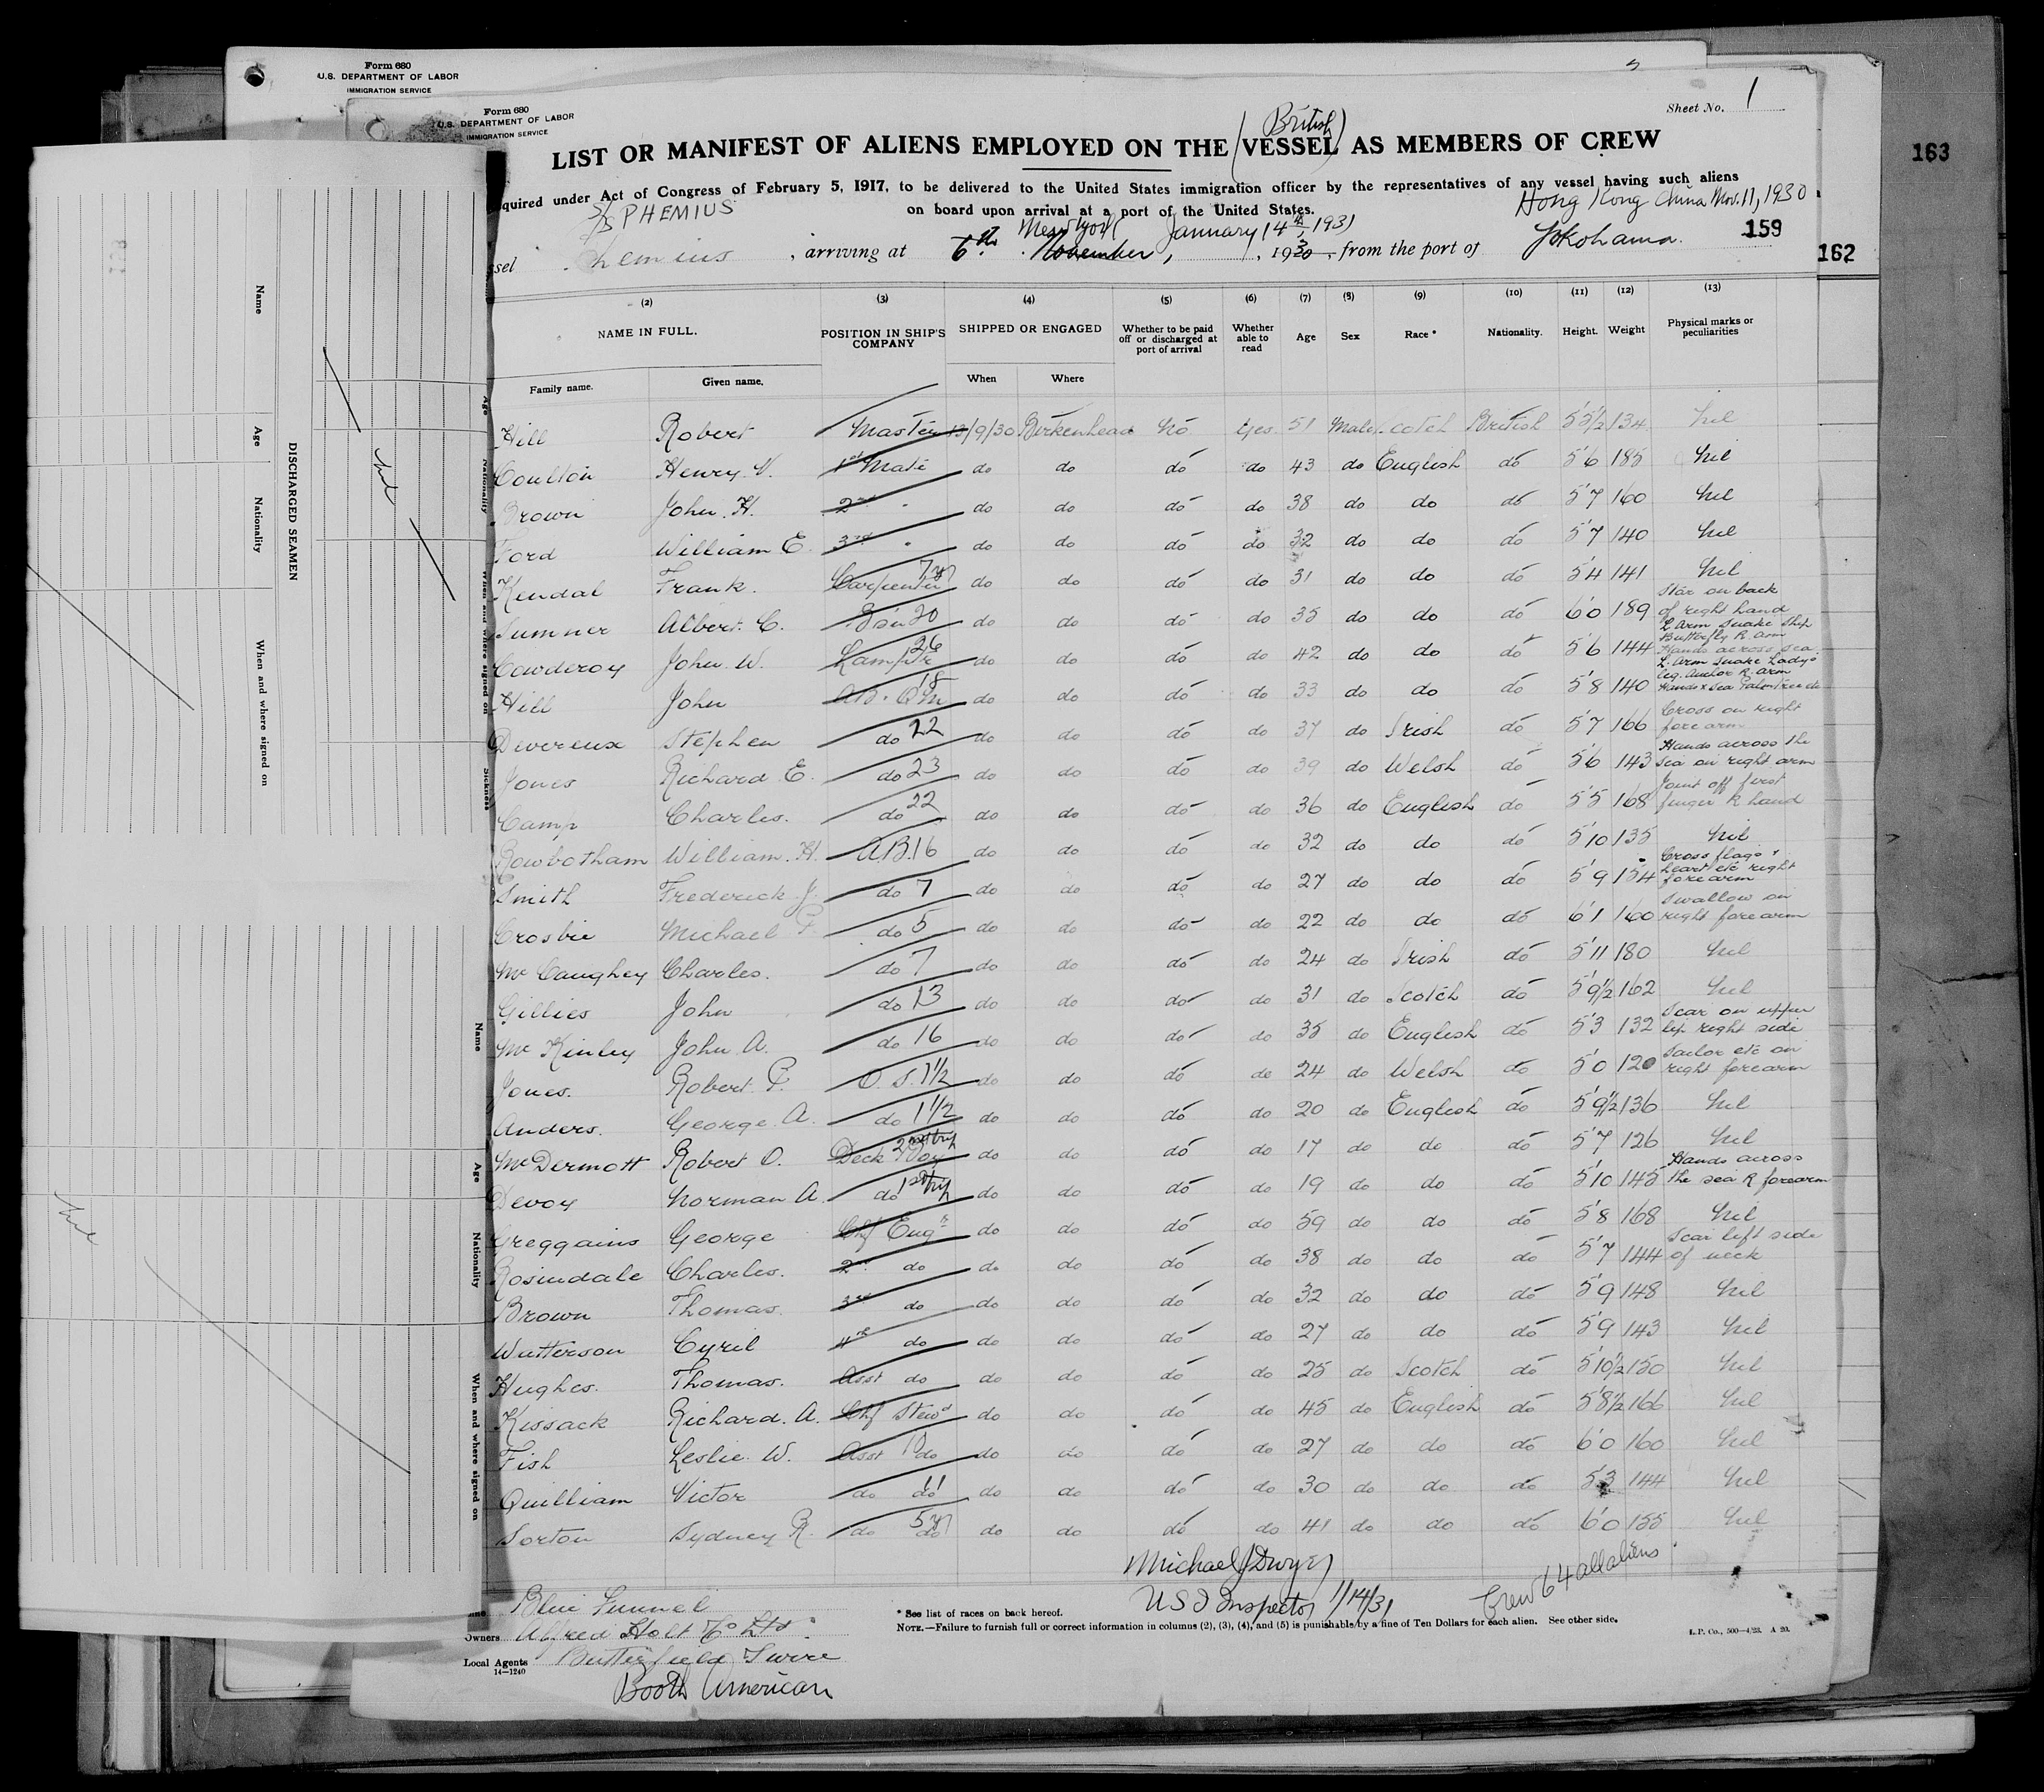 Form 680
U.S. DEPARTMENT OF LABOR
IMMIGRATION SERVICE
Form 680
U.S. DEPARTMENT OF LABOR
IMMIGRATION SERVICE
Sheet No. 1
163
(British)
LIST OR MANIFEST OF ALIENS EMPLOYED ON THE VESSEL AS MEMBERS OF CREW
quired under Act of Congress of February 5, 1917, to be delivered to the United States immigration officer by the representatives of any vessel having such aliens
on board upon arrival at a port of the United States.
S/S PHEMIUS
Hong Kong China Nov. 11, 1930
New York January 14th, 1931
159
162
ssel Phemius, arriving at 6th November, 1930, from the port of Yokohama.
(2) (3) (4) (5) (6) (7) (8) (9) (10) (11) (12) (13)
NAME IN FULL. POSITION IN SHIP'S COMPANY SHIPPED OR ENGAGED Whether to be paid off or discharged at port of arrival Whether able to read Age Sex Race* Nationality. Height. Weight Physical marks or peculiarities
Family name. Given name. When Where
Hill Robert Master 13/9/30 Birkenhead No Yes 51 Male Scotch British 5'5½ 134 Nil
Coulton Henry V. 1st Mate do do do do 43 do English do 5'6 185 Nil
Brown John H. 2nd " do do do do 38 do do do 5'7 160 Nil
Ford William E. 3rd " do do do do 32 do do do 5'7 140 Nil
Kendal Frank. Carpenter 7 yr do do do do 31 do do do 5'4 141 Nil
Sumner Albert C. Bsn 20 do do do do 35 do do do 6'0 189 Star on back of right hand
Cowderoy John W. Lamp Tr 26 do do do do 42 do do do 5'6 144 L Arm Snake Ship Butterfly R arm Hands across sea
Hill John AB. QM 18 do do do do 33 do do do 5'8 140 L. Arm Snake Lady's leg. Anchor R. arm Hands x Sea Palm Tree etc
Devereux Stephen do 22 do do do do 37 do Irish do 5'7 166 Cross on right fore arm
Jones Richard E. do 23 do do do do 39 do Welsh do 5'6 143 Hands across the sea on right arm
Camp Charles. do 22 do do do do 36 do English do 5'5 168 Joint off first finger R hand
Rowbotham William. H. AB. 16 do do do do 32 do do do 5'10 135 Nil
Smith Frederick J. do 7 do do do do 27 do do do 5'9 154 Cross flags & heart etc right forearm
Crosbie Michael P. do 5 do do do do 22 do do do 6'1 160 Swallow on right forearm
McCaughey Charles. do 7 do do do do 24 do Irish do 5'11 180 Nil
Gillies John do 13 do do do do 31 do Scotch do 5'9½ 162 Nil
McKinley John A. do 16 do do do do 35 do English do 5'3 132 Scar on upper lip right side
Jones. Robert P. O.S. 1½ do do do do 24 do Welsh do 5'0 120 Sailor etc on right forearm
Anders. George. A. do 1½ do do do do 20 do English do 5'9½ 136 Nil
McDermott Robert O. Deck Boy 2nd trip do do do do 17 do do do 5'7 126 Nil
Devoy Norman A. do 1st trip do do do do 19 do do do 5'10 145 Hands across the sea R forearm
Greggains George Chf Engr do do do do 59 do do do 5'8 168 Nil
Rosindale Charles. 2nd do do do do do 38 do do do 5'7 144 Scar left side of neck
Brown Thomas. 3rd do do do do do 32 do do do 5'9 148 Nil
Watterson Cyril 4th do do do do do 27 do do do 5'9 143 Nil
Hughes. Thomas. Asst do do do do do 25 do Scotch do 5'10½ 150 Nil
Kissack Richard. A. Chf Stewd do do do do 45 do English do 5'8½ 166 Nil
Fish Leslie W. Asst do 10 do do do do 27 do do do 6'0 160 Nil
Quilliam Victor do do 11 do do do do 30 do do do 5'3 144 Nil
Sorton Sydney R. do do 5 yr do do do do 41 do do do 6'0 155 Nil
Michael J Dwyer
US I Inspector 1/14/31
Crew 64 all aliens
Line Blue Funnel
Owners Alfred Holt & Co Ltd
Local Agents Butterfield Swire
14-1240
Booth American
* See list of races on back hereof.
NOTE.—Failure to furnish full or correct information in columns (2), (3), (4), and (5) is punishable by a fine of Ten Dollars for each alien. See other side.
L.P. Co., 500-4/23. A 20.
DISCHARGED SEAMEN
Name
Age
Nationality
When and where signed on
Nil
Age
Nationality
When and where signed on
Sickness
Name
Age
Nationality
When and where signed on
Nil